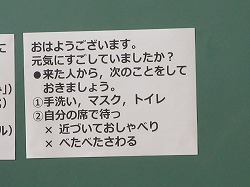 おはようございます。
元気にすごしていましたか？
●来た人から，次のことをして
おきましょう。
①手洗い，マスク，トイレ
②自分の席で待つ
× 近づいておしゃべり
× べたべたさわる